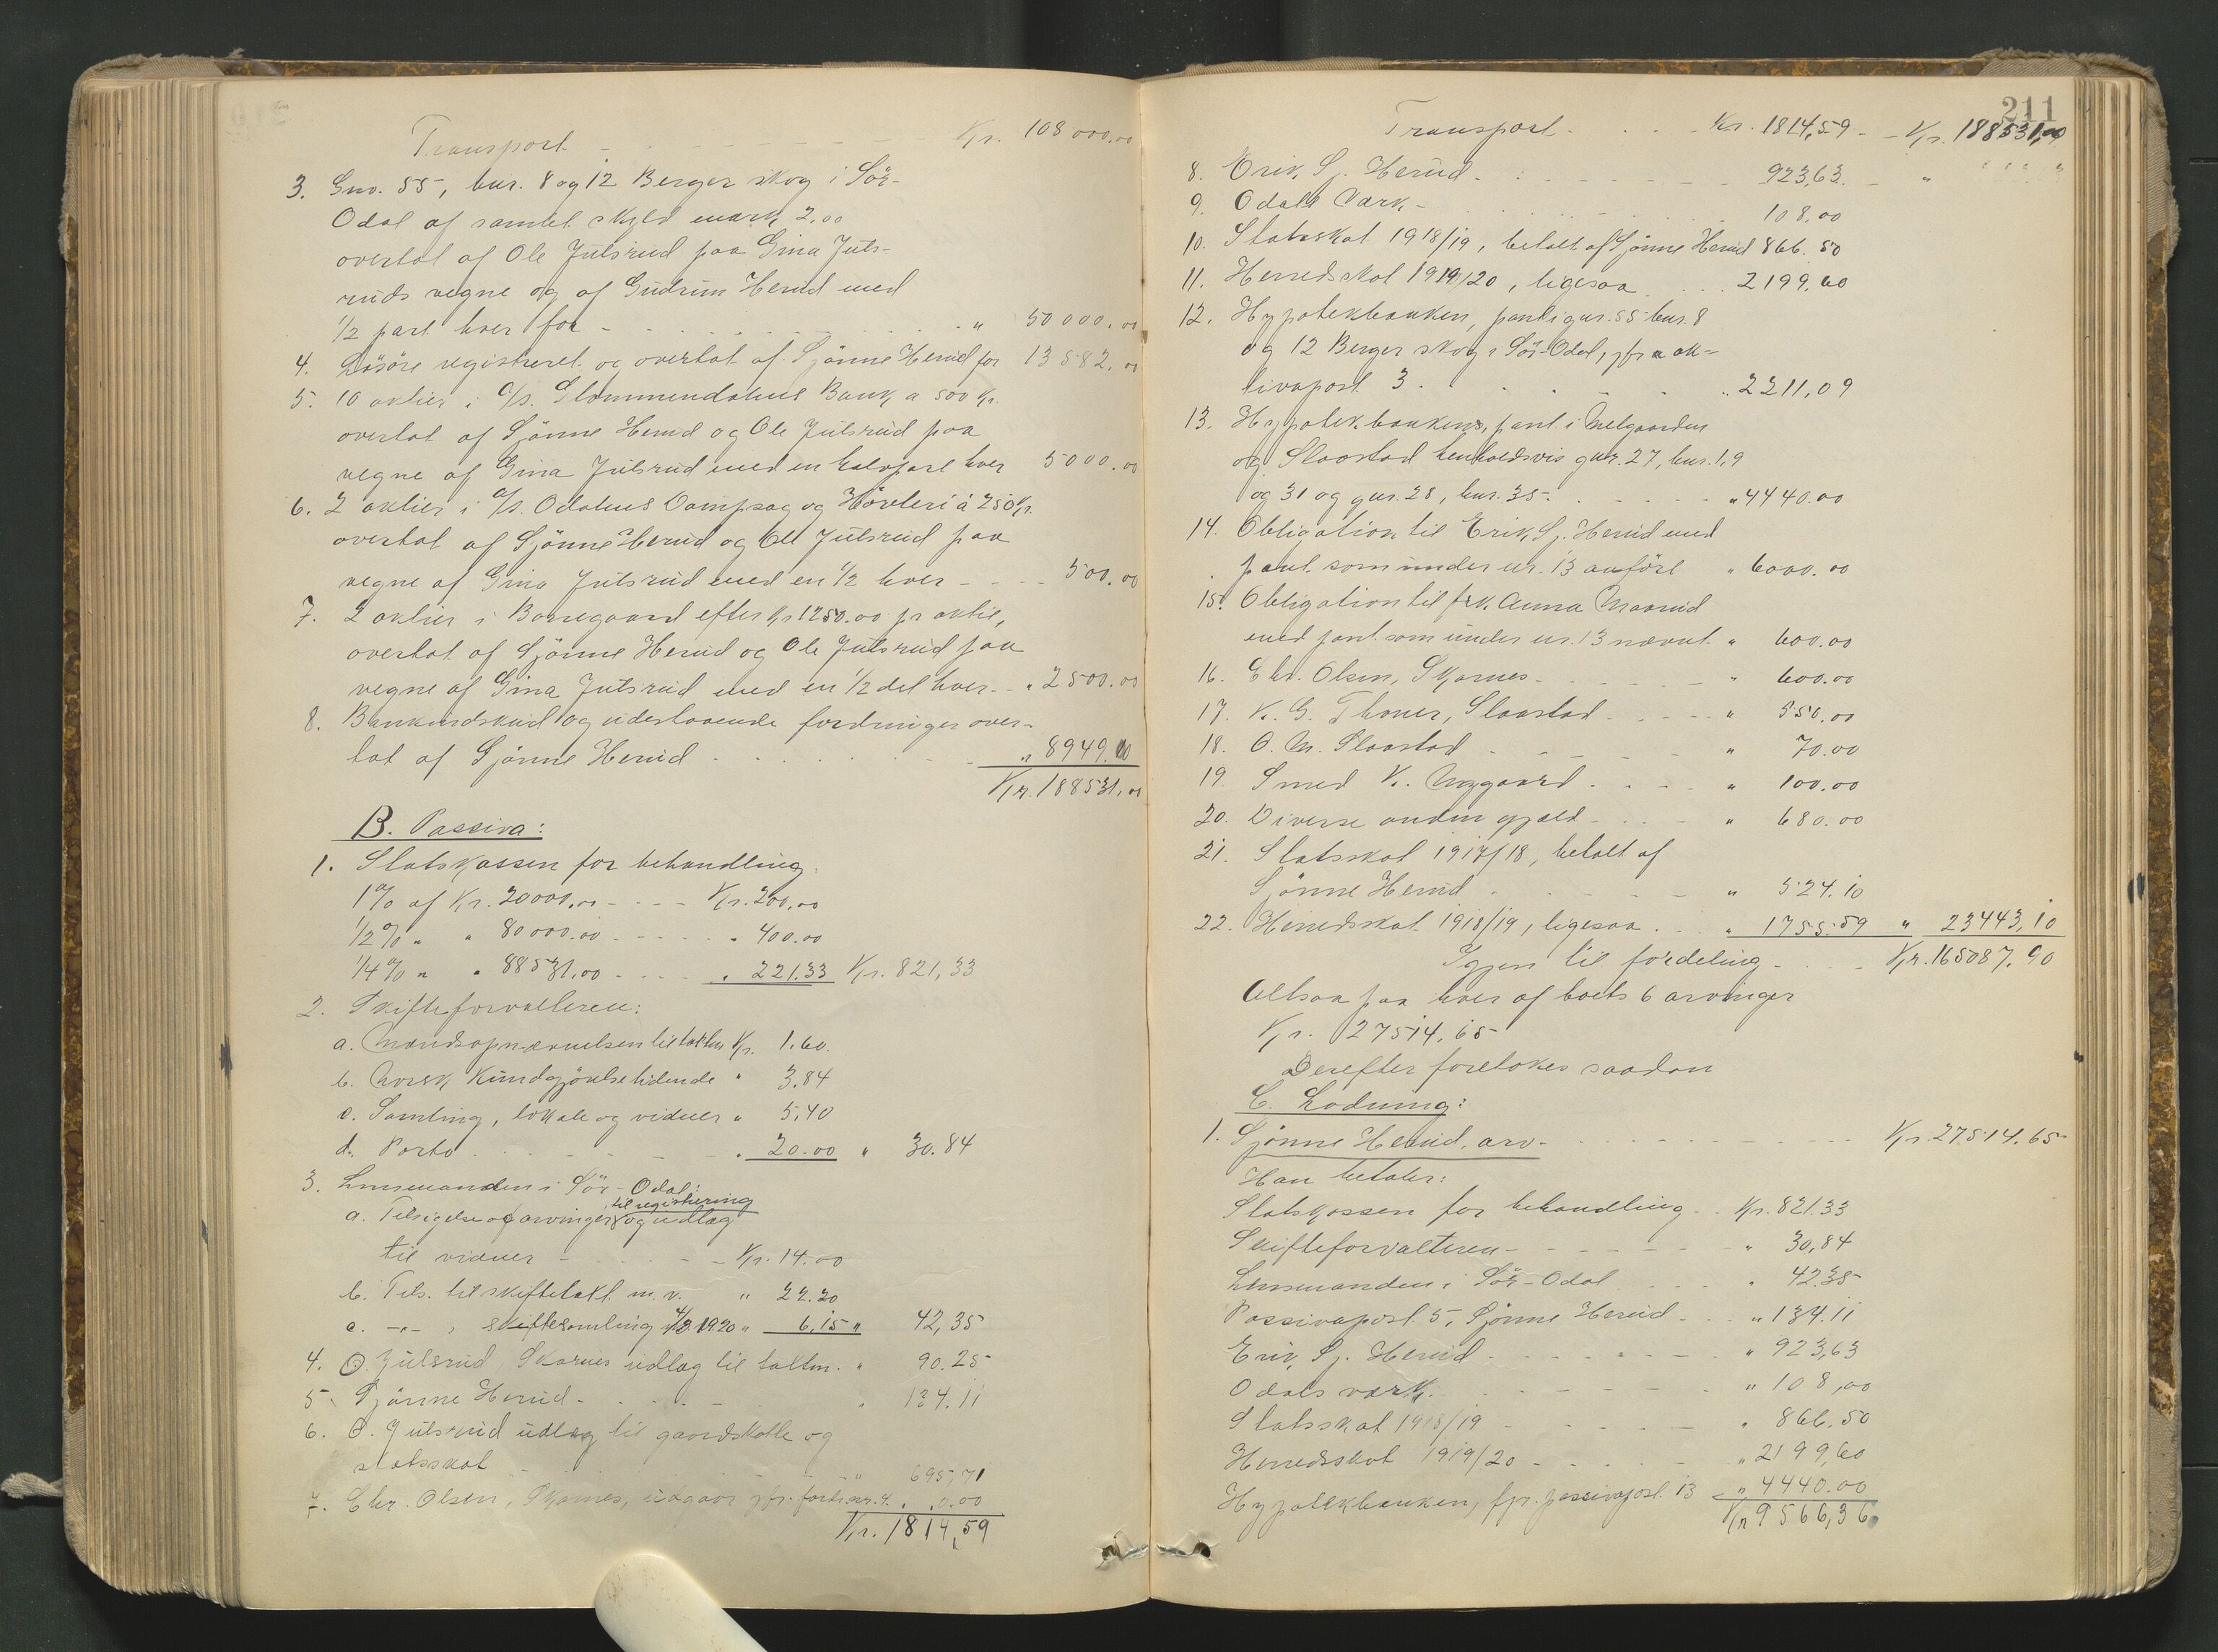 Transport - - - - - - - Kr. 108 000.00
3. Gno. 55, bnr. 8 og 12 Berger skog i Sör-
Odal af samlet skyld mark 2.00
overtat af Ole Julsrud paa Gina Juls-
ruds vegne og af Gudrun Herud med
1/2 part hver for - - - - - - - " 50 000.00
4. Lösöre registreret og overtat af Sjönne Herud for 13 582.00
5. 10 aktier i A/S. Glommendalens Bank a 500 kr.
overtat af Sjönne Herud og Ole Julsrud paa
vegne af Gina Julsrud med en halvpart hver 5000.00
6. 2 aktier i A/S. Odalens Dampsag og Hövleri à 250 kr.
overtat af Sjönne Herud og Ole Julsrud paa
vegne af Gina Julsrud med en 1/2 hver - - - 500.00
7. 2 aktier i Borregaard efter kr 1250.00 pr aktie,
overtat af Sjönne Herud og Ole Julsrud paa
vegne af Gina Julsrud med en 1/2 del hver - " 2500.00
8. Bankindskud og udestaaende fordringer over-
tat af Sjönne Herud - - - - - " 8949.00
Kr. 188531.00
B. Passiva:
1. Statskassen for behandling.
1% af Kr. 20000.00 - - - Kr. 200.00
1/2% " " 80000.00 - - - " 400.00
1/4% " " 88531.00 - - - " 221.33 Kr. 821,33
2. Skifteforvalteren:
a. Mandsopnævnelsen til takten Kr. 1.60.
b. Norsk Kundgjörelsetidende " 3.84
c. Samling, lokale og vidner " 5.40
d. Porto - - - - " 20.00 " 30.84
3. Lensmanden i Sör-Odal:
til registrering
a. Tilsigelse af arvinger og udlæg
til vidner - - - - Kr. 14.00
b. Tils. til skiftetakt m. v. " 22.20
c. -"- , skiftesamling 4/3 1920 " 6,15 " 42,35
4. O. Julsrud, Skarnes udlæg til taktm. " 90.25
5. Sjönne Herud - - - - " 134.11
6. O. Julsrud udlæg til gaardskatte og
statsskat - - - - " 695,71
7. Chr. Olsen, Skarnes, udgaar jfr. post nr. 4. " 0.00
Kr. 1814,59
211
Transport - - - Kr. 1814,59 - Kr. 188531,00
8. Erik Sj. Herud - - - - 923,63. - "
9. Odals Værk - - - - 108,00
10. Statsskat 1918/19, betalt af Sjönne Herud 866.50
11. Herredsskat 1919/20, ligesaa . . . 2199.60
12. Hypotekbanken, pant i gnr. 55 bnr. 8
og 12 Berger skog i Sör-Odal, jfr ak-
tivapost 3 . - - - - " 2211,09
13. Hypotekbanken, pant i Melgaarden
og Slaastad henholdsvis gnr. 27, bnr. 1, 9
og 31 og gnr. 28, bnr. 35 - - - - " 4440.00
14. Obligation til Erik Sj. Herud med
pant som under nr. 13 anfört " 6000.00
15. Obligation til frk. Anna Maarud
med pant som under nr. 13 nævnt " 600.00
16. Chr. Olsen, Skarnes - - - - " 600.00
17. K. G. Thoner, Slaastad - - - " 350.00
18. O. M. Slaastad - - - - " 70.00
19. Smed K. Nygaard . - - - " 100.00
20. Diverse anden gjæld - - - " 680.00
21. Statsskat 1917/18, betalt af
Sjönne Herud - - - - " 524.10
22. Herredsskat 1918/19, ligesaa . . " 1755.59 " 23443,10
Igjen til fordeling - - - Kr. 165087.90
Altsaa paa hver af boets 6 arvinger
Kr. 27514.65
Derefter foretokes saadan
C. Lodning:
1. Sjönne Herud, arv - - - - - Kr. 27514.65
Han betaler:
Statskassen for behandling . . Kr. 821.33
Skifteforvalteren - - - - " 30,84
Lensmanden i Sör-Odal - - - " 42.35
Passivapost 5, Sjönne Herud - - " 134.11
Erik Sj. Herud - - - - " 923,63
Odals værk - - - - " 108,00
Statsskat 1918/19 - - - - " 866.50
Herredsskat 1919/20 - - - - " 2199,60
Hypotekbanken, fjr. passivapost 13 - " 4440.00
Kr 9566,36